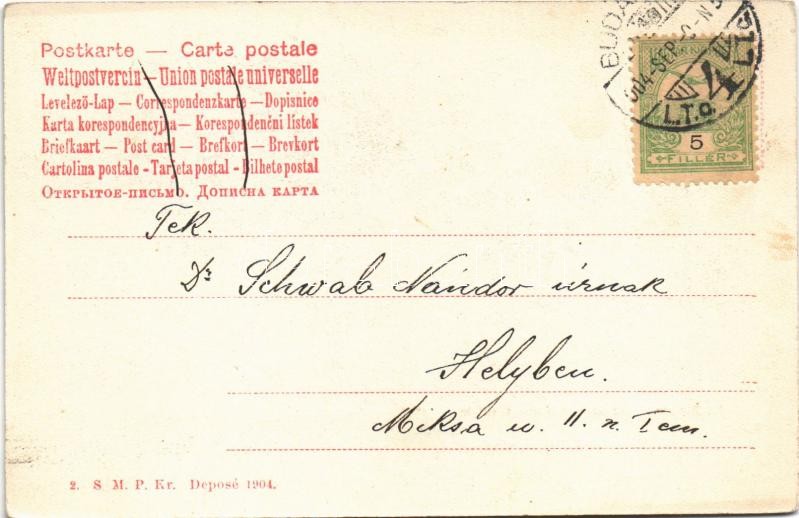 Postkarte — Carte postale
Weltpostverein — Union postale universelle
Levelező-Lap — Correspondenzkarte — Dopisnice
Karta korespondencyjna — Korespondenční lístek
Briefkaart — Post card — Brefkort — Brevkort
Cartolina postale - Tarjeta postal - Bilhete postal
Открытое-письмо. Дописна карта
5
FILLÉR
4
L.T.G.
Tek.
Dr Schwab Nándor úrnak
Helyben.
Miksa u. 11. n. I em.
2. S M. P. Kr. Deposé 1904.